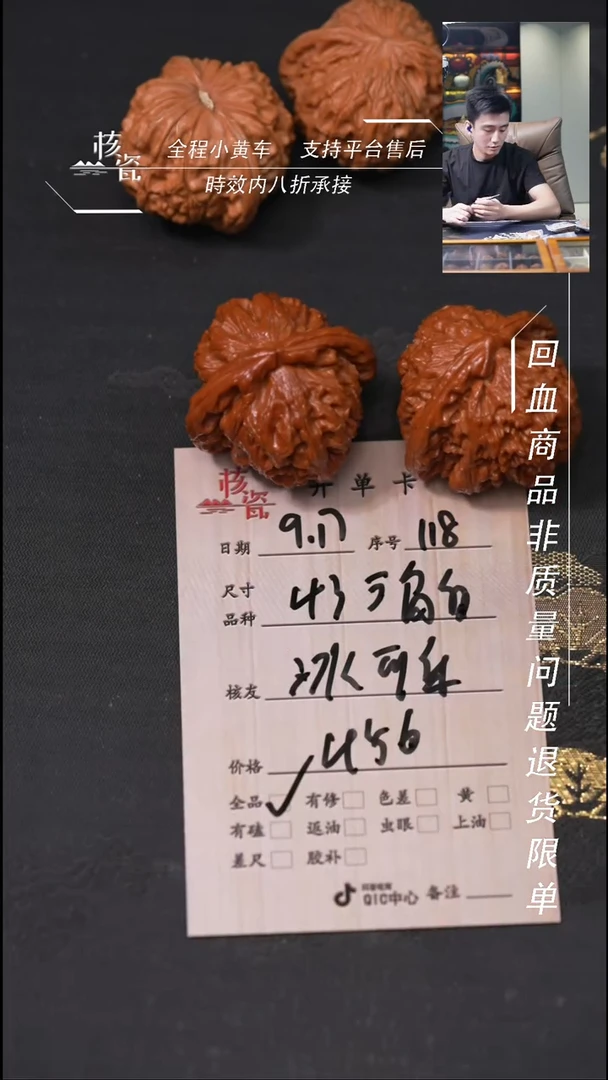 核瓷
全程小黄车 支持平台售后
時效内八折承接
回血商品非质量问题退货限单
核瓷
开单卡
日期 9.17 序号 118
尺寸 43
品种
核友
价格 456
全品 有修 色差 黄
有磕 返油 虫眼 上油
差尺 胶补
抖音电商
QIC中心 备注